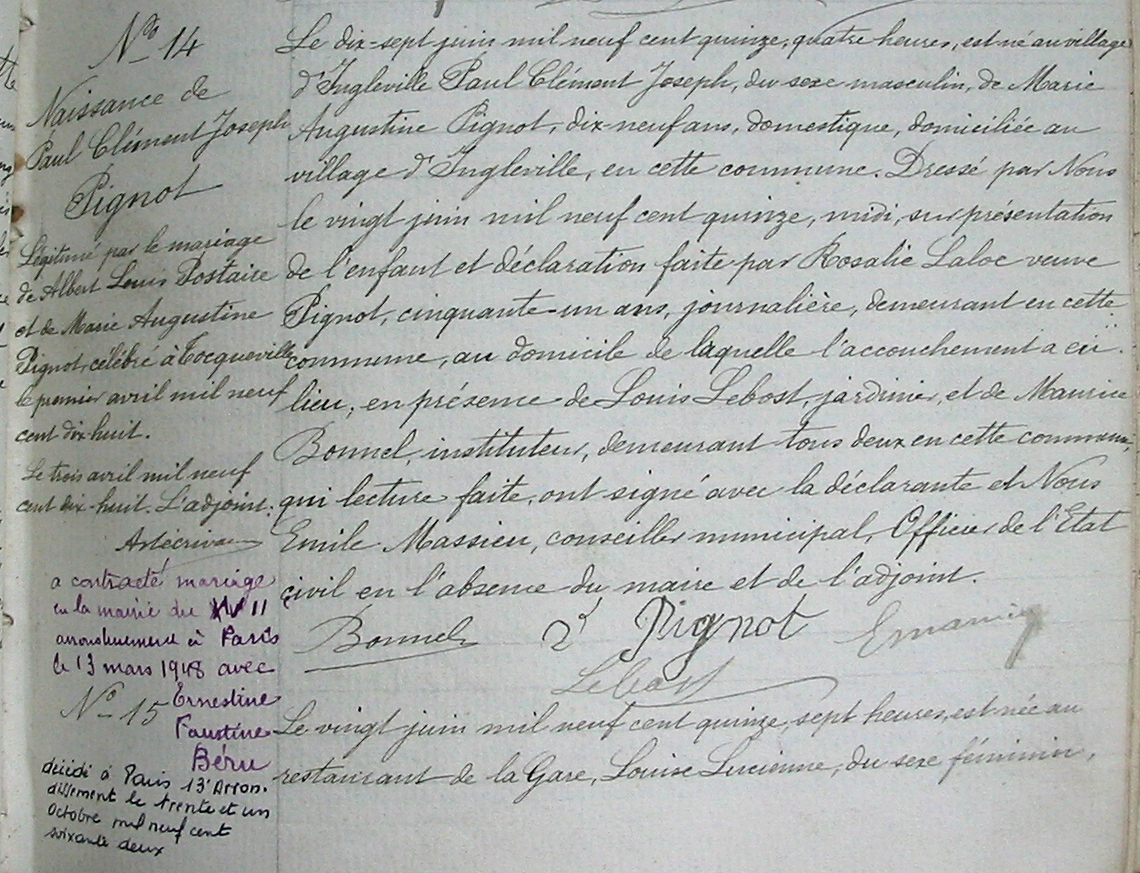 No 14
Naissance de
Paul Clément Joseph
Pignot
Légitimé par le mariage
de Albert Louis Postaire
et de Marie Augustine
Pignot, célébré à Tocqueville
le premier avril mil neuf
cent dix-huit.
Le trois avril mil neuf
cent dix-huit. L'adjoint:
a contracté mariage
en la mairie du XVII
arrondissement à Paris
le 13 mars 1948 avec
Ernestine
Faustine
Béru
décédé à Paris 13e Arron.
dissement le trente et un
Octobre mil neuf cent
soixante deux
Le dix-sept juin mil neuf cent quinze, quatre heures, est né au village
d'Ingleville Paul Clément Joseph, du sexe masculin, de Marie
Augustine Pignot, dix-neuf ans, domestique, domiciliée au
village d'Ingleville, en cette commune. Dressé par Nous
le vingt juin mil neuf cent quinze, midi, sur présentation
de l'enfant et déclaration faite par Rosalie Laloe veuve
Pignot, cinquante-un ans, journalière, demeurant en cette
commune, au domicile de laquelle l'accouchement a eu
lieu, en présence de Louis Lebost, jardinier, et de Maurice
Bonnel, instituteur, demeurant tous deux en cette commune,
qui lecture faite, ont signé avec la déclarante et Nous
Emile Massieu, conseiller municipal, Officier de l'Etat
civil en l'absence du maire et de l'adjoint.
Bonnel Pignot
Lebost
No 15
Le vingt juin mil neuf cent quinze, sept heures, est née au
restaurant de la Gare, Louise Lucienne, du sexe féminin,